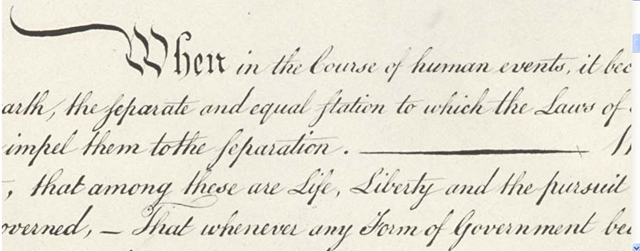 When in the Course of human events, it bec
arth, the ſeparate and equal ſtation to which the Laws of
impel them to the ſeparation. ————
, that among theſe are Life, Liberty and the pursuit
overned, — That whenever any Form of Government bec